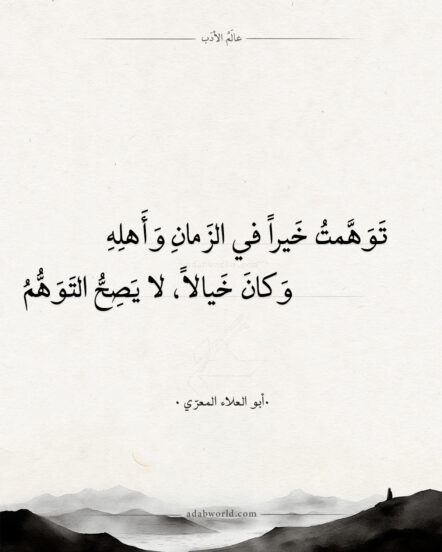 عالَمُ الأدَب
تَوَهَّمتُ خَيراً في الزَمانِ وَأَهلِهِ
وَكانَ خَيالاً، لا يَصِحُّ التَوَهُّمُ
•أبو العلاء المعرّي •
adabworld.com